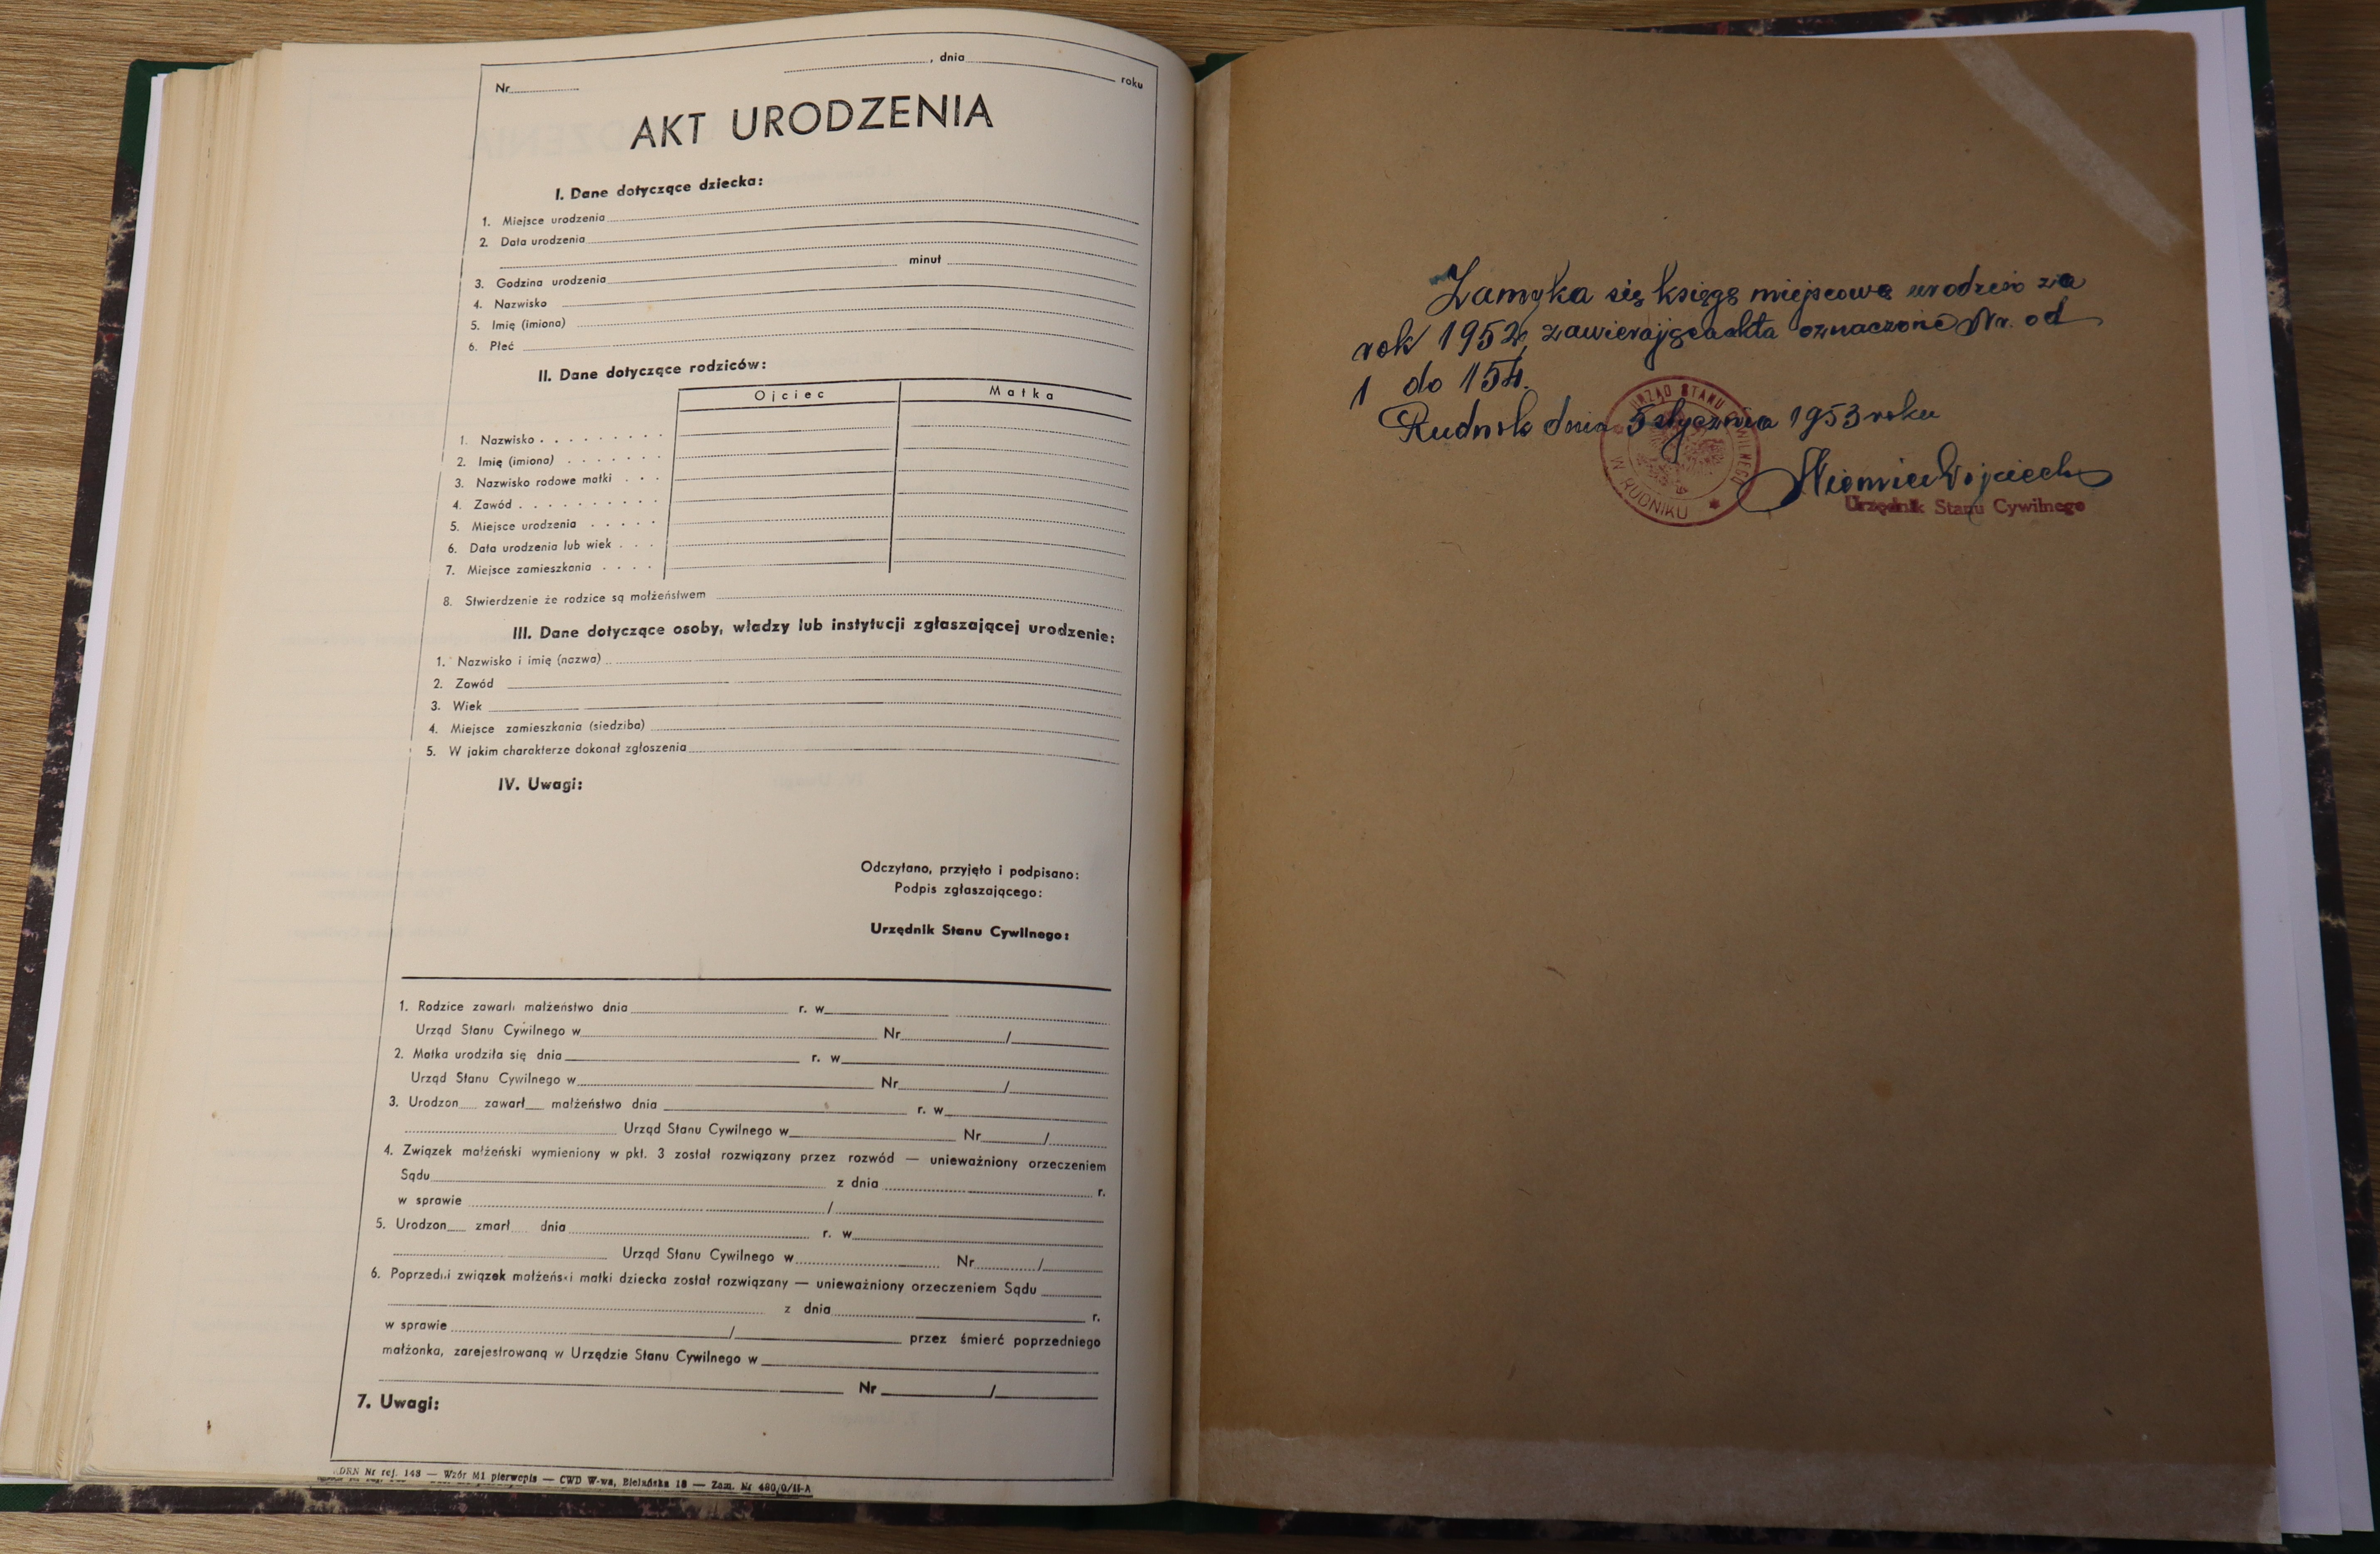 Nr , dnia roku
AKT URODZENIA
I. Dane dotyczące dziecka:
1. Miejsce urodzenia
2. Data urodzenia
minut
3. Godzina urodzenia
4. Nazwisko
5. Imię (imiona)
6. Płeć
II. Dane dotyczące rodziców:
Ojciec Matka
1. Nazwisko
2. Imię (imiona)
3. Nazwisko rodowe matki
4. Zawód
5. Miejsce urodzenia
6. Data urodzenia lub wiek
7. Miejsce zamieszkania
8. Stwierdzenie że rodzice są małżeństwem
III. Dane dotyczące osoby, władzy lub instytucji zgłaszającej urodzenie:
1. Nazwisko i imię (nazwa)
2. Zawód
3. Wiek
4. Miejsce zamieszkania (siedziba)
5. W jakim charakterze dokonał zgłoszenia
IV. Uwagi:
Odczytano, przyjęto i podpisano:
Podpis zgłaszającego:
Urzędnik Stanu Cywilnego:
1. Rodzice zawarli małżeństwo dnia r. w
Urząd Stanu Cywilnego w Nr /
2. Matka urodziła się dnia r. w
Urząd Stanu Cywilnego w Nr /
3. Urodzon zawarł małżeństwo dnia r. w
Urząd Stanu Cywilnego w Nr /
4. Związek małżeński wymieniony w pkt. 3 został rozwiązany przez rozwód — unieważniony orzeczeniem
Sądu z dnia r.
w sprawie /
5. Urodzon zmarł dnia r. w
Urząd Stanu Cywilnego w Nr /
6. Poprzedni związek małżeński matki dziecka został rozwiązany — unieważniony orzeczeniem Sądu
z dnia r.
w sprawie / przez śmierć poprzedniego
małżonka, zarejestrowaną w Urzędzie Stanu Cywilnego w
Nr /
7. Uwagi:
DRN Nr rej. 148 — Wzór M1 pierwopis — CWD W-wa, Bielańska 18 — Zam. Nr 480/0/II-A
Zamyka się księgę miejscową urodzeń za
rok 1952, zawierającą akta oznaczone Nr. od
1 do 154.
Rudnik dnia 5 stycznia 1953 roku
URZĄD STANU CYWILNEGO
W RUDNIKU
Niemiec Wojciech
Urzędnik Stanu Cywilnego